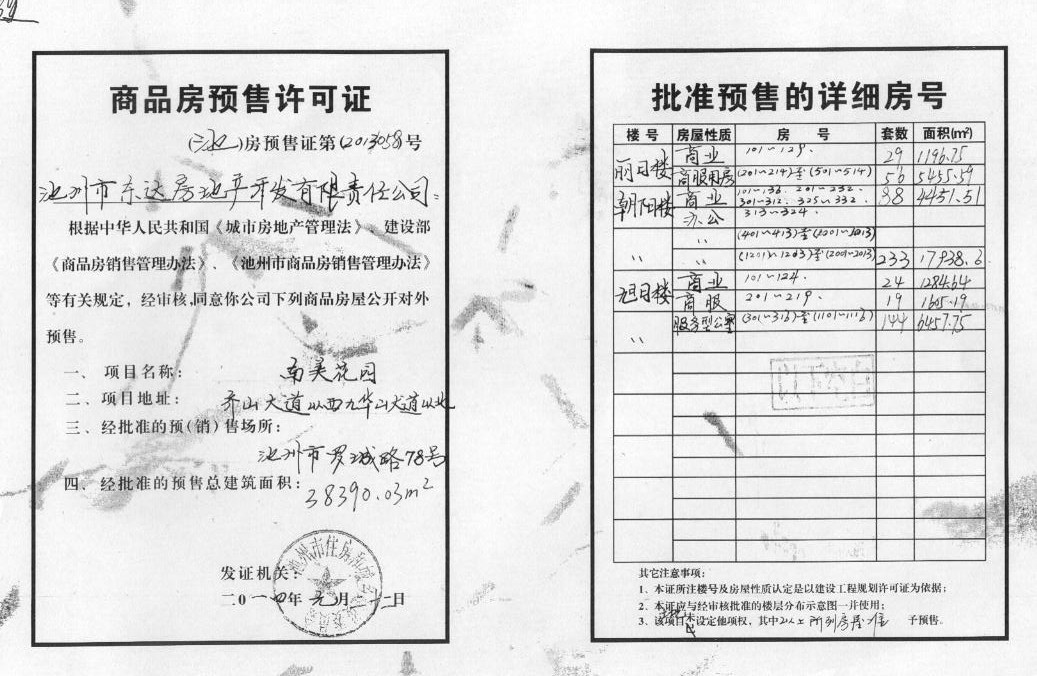 商品房预售许可证
(池)房预售证第(2013058)号
池州市东达房地产开发有限责任公司:
根据中华人民共和国《城市房地产管理法》、建设部
《商品房销售管理办法》、《池州市商品房销售管理办法》
等有关规定，经审核,同意你公司下列商品房屋公开对外
预售。
一、 项目名称: 南美花园
二、项目地址: 齐山大道以西九华山大道以北
三、经批准的预(销)售场所:
池州市罗城路78号
四、经批准的预售总建筑面积: 38390.03m²
池州市住房和城
发证机关:
二0一四年元月二十二日
批准预售的详细房号
楼号 房屋性质 房号 套数 面积(m²)
丽日楼 商业 101~129. 29 1196.75
商服用房 (201~214)至(501~514) 56 5455.59
朝阳楼 商业 101~136. 201~232. 88 4451.51
301~312. 325~332.
办公 313~324.
〃 (401~413)至
〃 〃 (1201~1213)至(2001~2013) 233 17938.6
旭日楼 商业 101~124. 24 1284.64
商服 201~219. 19 1605.19
〃 服务型公寓 (301~316)至(1101~1116) 144 6457.75
其它注意事项:
1、本证所注楼号及房屋性质认定是以建设工程规划许可证为依据;
2、本证应与经审核批准的楼层分布示意图一并使用;
3、该项目未设定他项权，其中以上所列房屋准予预售。